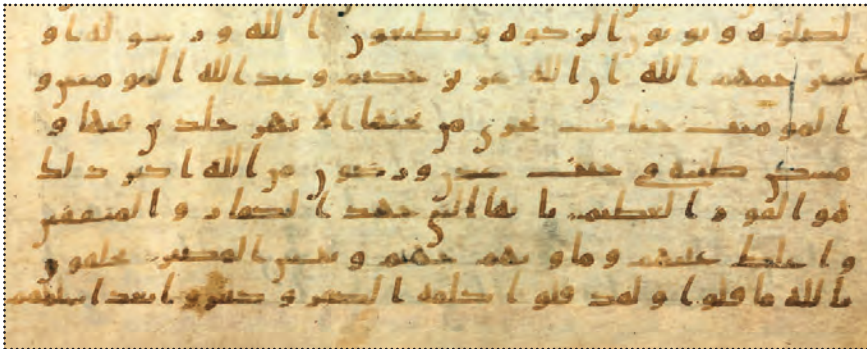 لصلوه ويوتون الزكوه ويطيعون الله ورسوله او
سيرحمهم الله ان الله عزيز حكيم وعد الله المومنين و
المومنت جنات تجري من تحتها الانهر خلدين فيها و
مسكن طيبه في جنت عدن ورضون من الله اكبر ذلك
هو الفوز العظيم يايها النبي جهد الكفار والمنفقين
واغلظ عليهم وماويهم جهنم وبيس المصير يحلفون
بالله ما قلوا ولقد قلوا كلمه الكفر وكفروا بعد اسلمهم